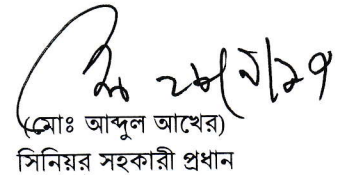 ২৮/৭/১৭
(মোঃ আব্দুল আখের)
সিনিয়র সহকারী প্রধান